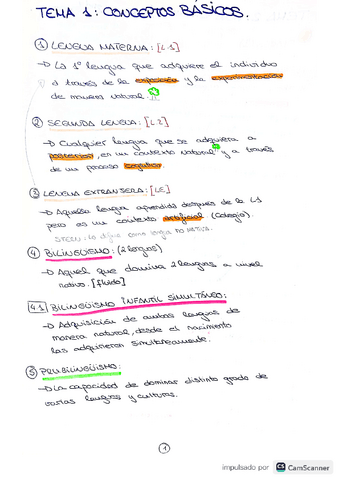 TEMA 1: CONCEPTOS BÁSICOS.
① LENGUA MATERNA: [L1]
→ La 1º lengua que adquiere el individuo
a través de la exposición y la experimentación
de manera natural.
② SEGUNDA LENGUA: [L2]
→ Cualquier lengua que se adquiera a
posteriori, en un contexto natural y a través
de un proceso cognitivo.
③ LENGUA EXTRANJERA: [LE]
→ Aquella lengua aprendida después de la L1
pero es un contexto artificial (Colegio).
como lengua no nativa.
④ BILINGÜISMO: (2 lenguas)
→ Aquel que domina 2 lenguas a nivel
nativo. [fluido]
4.1 BILINGÜISMO INFANTIL SIMULTÁNEO:
→ Adquisición de ambas lenguas de
manera natural, desde el nacimiento
las adquirieron simultáneamente.
⑤ PLURILINGÜISMO:
→ La capacidad de dominar distinto grado de
varias lenguas y culturas.
①
impulsado por CS CamScanner